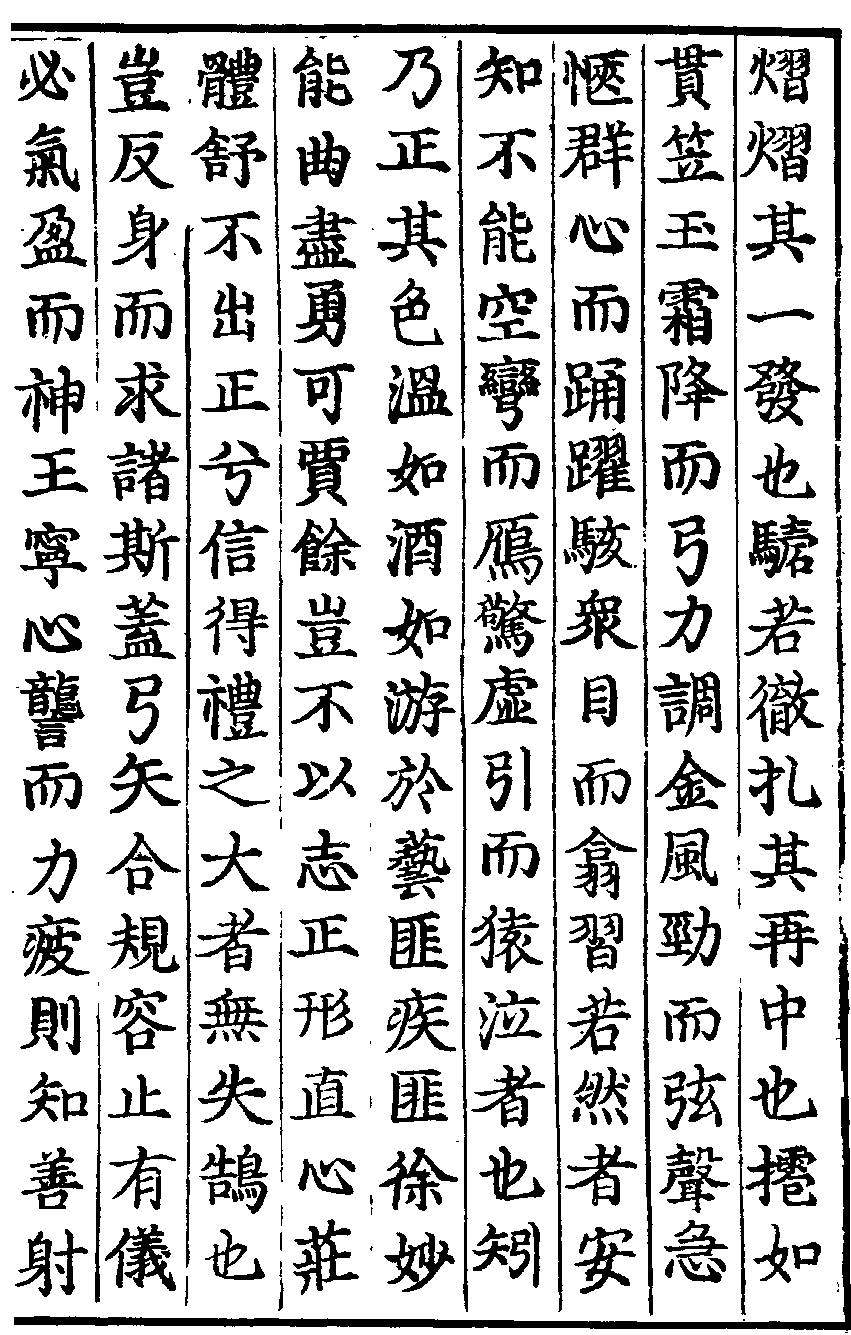 熠熠其一發也驕若徹扎其再中也摼如
貫笠玉霜降而弓力調金風勁而弦聲急
愜群心而踊躍駭衆目而翕習若然者安
知不能空彎而鴈驚虛引而猿泣者也矧
乃正其色溫如酒如游於藝匪疾匪徐妙
能曲盡勇可賈餘豈不以志正形直心莊
體舒不出正兮信得禮之大者無失鵠也
豈反身而求諸斯蓋弓矢合規容止有儀
必氣盈而神王寧心讋而力疲則知善射